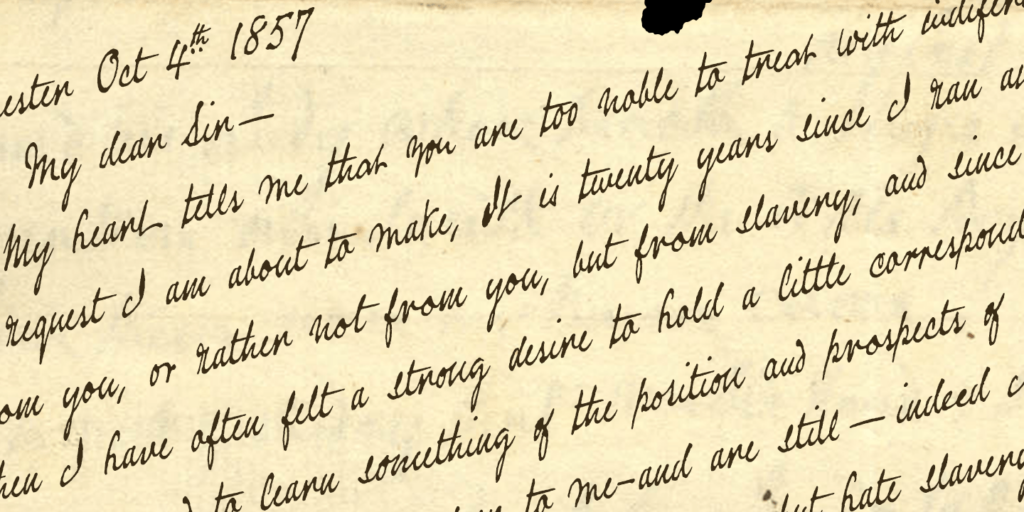 Oct 4th 1857
My dear Sir—
My heart tells me that you are too noble to treat with
request I am about to make, It is twenty years since I ran
you, or rather not from you, but from slavery, and since
I have often felt a strong desire to hold a little
to learn something of the position and prospects of
to me—and are still—indeed
hate